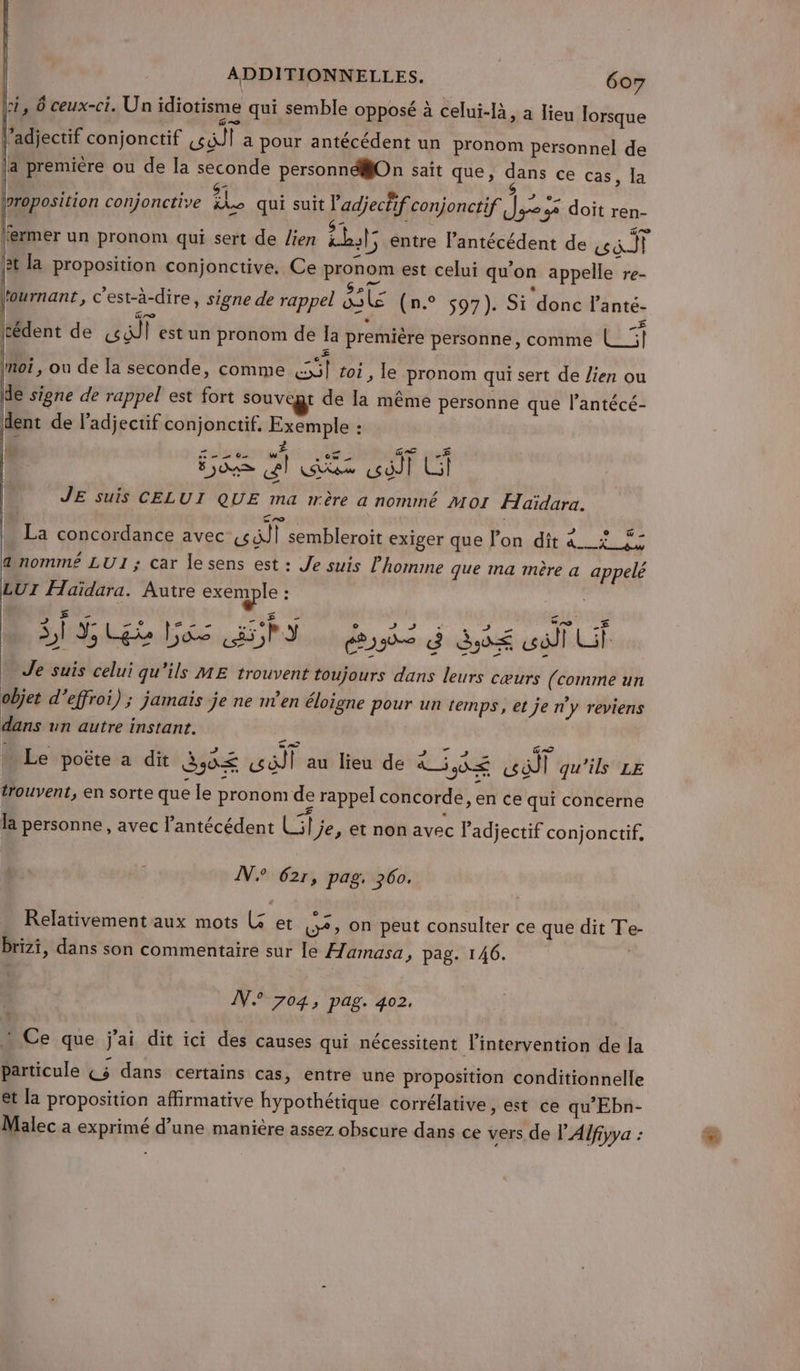 ADDITIONNELLES. 607
ci, ô ceux-ci. Un idiotisme qui semble opposé à celui-là, a lieu lorsque
l'adjectif conjonctif الّذى a pour antécédent un pronom personnel de
la première ou de la seconde personne. On sait que, dans ce cas, la
proposition conjonctive صلة qui suit l'adjectif conjonctif موصول doit ren-
fermer un pronom qui sert de lien رابطة entre l'antécédent de الّذى
et la proposition conjonctive. Ce pronom est celui qu'on appelle re-
tournant, c'est-à-dire, signe de rappel عائد (n.º 597). Si donc l'anté-
cédent de الّذى est un pronom de la première personne, comme أنا
moi, ou de la seconde, comme أنت toi, le pronom qui sert de lien ou
de signe de rappel est fort souvent de la même personne que l'antécé-
dent de l'adjectif conjonctif. Exemple :
أنا الّذى سمّتنى أمّى حيدرة
JE suis CELUI QUE ma mère a nommé MOI Haïdara.
La concordance avec الّذى sembleroit exiger que l'on dit سمّته
a nommé LUI ; car le sens est : Je suis l'homme que ma mère a appelé
LUI Haïdara. Autre exemple :
أنا الّذى يجدونى فى صدورهم لا أرتقى صدرا منها ولا أرد
Je suis celui qu'ils ME trouvent toujours dans leurs cœurs (comme un
objet d'effroi) ; jamais je ne m'en éloigne pour un temps, et je n'y reviens
dans un autre instant.
Le poëte a dit الّذى يجدونى au lieu de الّذى يجدونه qu'ils LE
trouvent, en sorte que le pronom de rappel concorde, en ce qui concerne
la personne, avec l'antécédent أنا je, et non avec l'adjectif conjonctif.
N.º 621, pag. 360.
Relativement aux mots ما et من, on peut consulter ce que dit Te-
brizi, dans son commentaire sur le Hamasa, pag. 146.
N.º 704, pag. 402.
Ce que j'ai dit ici des causes qui nécessitent l'intervention de la
particule ف dans certains cas, entre une proposition conditionnelle
et la proposition affirmative hypothétique corrélative, est ce qu'Ebn-
Malec a exprimé d'une manière assez obscure dans ce vers de l'Alfiyya :